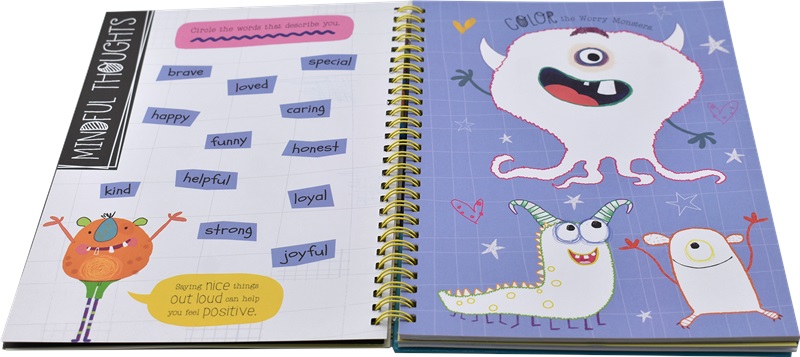 MINDFUL THOUGHTS
Circle the words that describe you.
brave
loved
special
happy
caring
funny
honest
kind
helpful
loyal
strong
joyful
Saying nice things
out loud can help
you feel positive.
COLOR the Worry Monsters